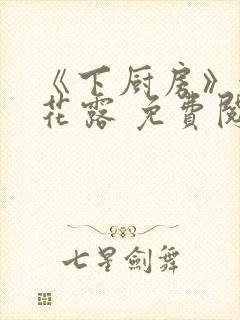 《下厨房》
花露 免費閱
七星劍舞